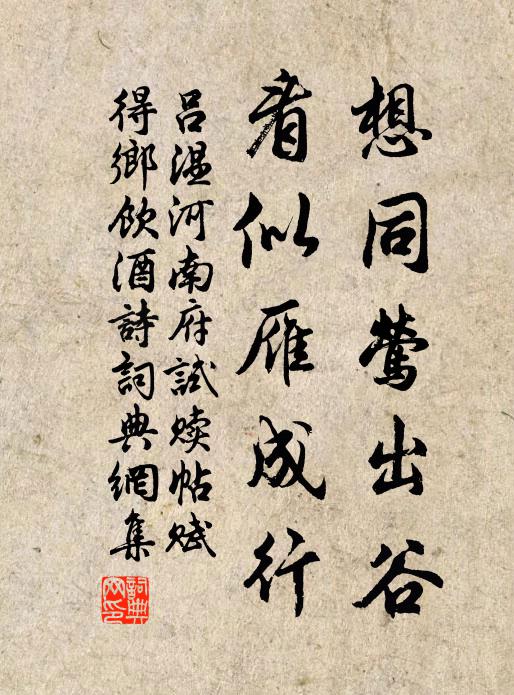 想同鶯出谷
看似雁成行
吕温河南府試赎帖赋
得鄉飲酒詩詞典網集
詞典
网印